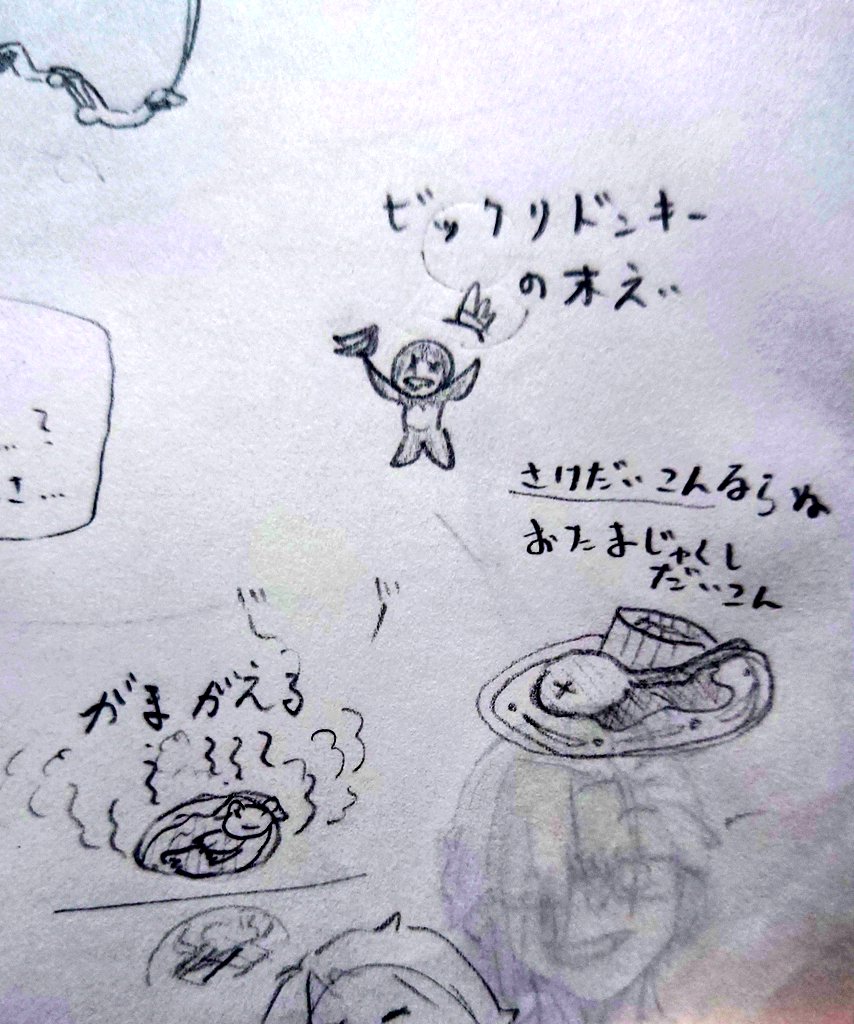 ビックリドンキー
の木えい
…?
さ…
さけだいこんならぬ
おたまじゃくし
だいこん
がまがえる